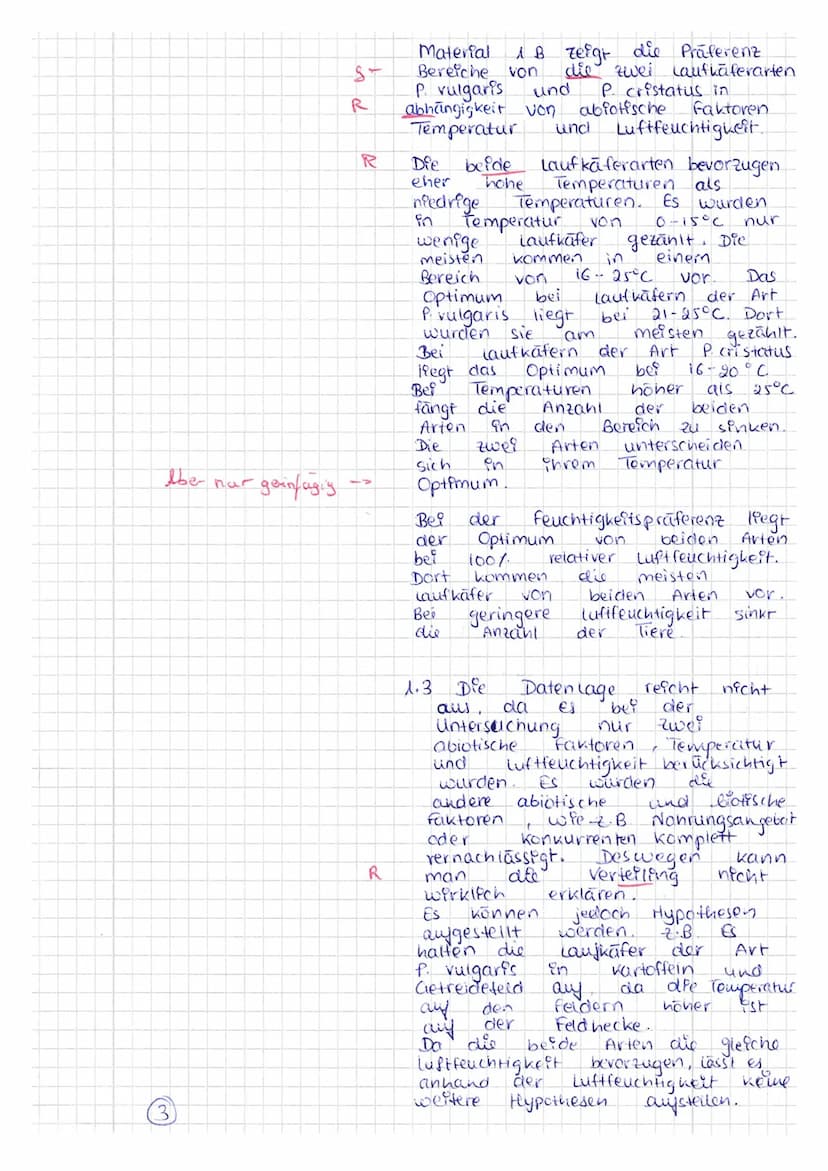 Material 1 B zeigt die Präferenz
S- Bereiche von die zwei Laufkäferarten
P. vulgaris und P. cristatus in
R abhängigkeit von abiotische Faktoren
Temperatur und Luftfeuchtigkeit.
R Die beide Laufkäferarten bevorzugen
eher hohe Temperaturen als
niedrige Temperaturen. Es wurden
in Temperatur von 0-15°C nur
wenige Laufkäfer gezählt. Die
meisten kommen in einem
Bereich von 16-25°C vor. Das
Optimum bei Laufkäfern der Art
P. vulgaris liegt bei 21-25°C. Dort
wurden sie am meisten gezählt.
Bei Laufkäfern der Art P. cristatus
liegt das Optimum bei 16-20°C
Bei Temperaturen höher als 25°C
fängt die Anzahl der beiden
Arten in den Bereich zu sinken.
Die zwei Arten unterscheiden
sich in ihrem Temperatur
Aber nur geinfügig -->
Optimum.
Bei der Feuchtigkeitspräferenz liegt
der Optimum von beiden Arten
bei 100% relativer Luftfeuchtigkeit.
Dort kommen die meisten
Laufkäfer von beiden Arten vor.
Bei geringere Luftfeuchtigkeit sinkt
die Anzahl der Tiere.
1.3 Die Datenlage reicht nicht
aus, da es bei der
Untersuchung nur zwei
abiotische Faktoren, Temperatur
und Luftfeuchtigkeit berücksichtigt
wurden. Es wurden die
andere abiotische und biotische
Faktoren, wie z.B Nahrungsangebot
oder Konkurrenten komplett
vernachlässigt. Deswegen kann
R man die Verteiling nicht
wirklich erklären.
Es können jedoch Hypothesen
aufgestellt werden. z.B. Es
halten die Laufkäfer der Art
P. vulgaris in Kartoffeln und
Getreidefeld auf, da die Temperatur
auf den Feldern höher ist
auf der Feldhecke.
Da die beide Arten die gleiche
Luftfeuchtigkeit bevorzugen, lässt es
anhand der Luftfeuchtigkeit keine
weitere Hypothesen aufstellen.
3